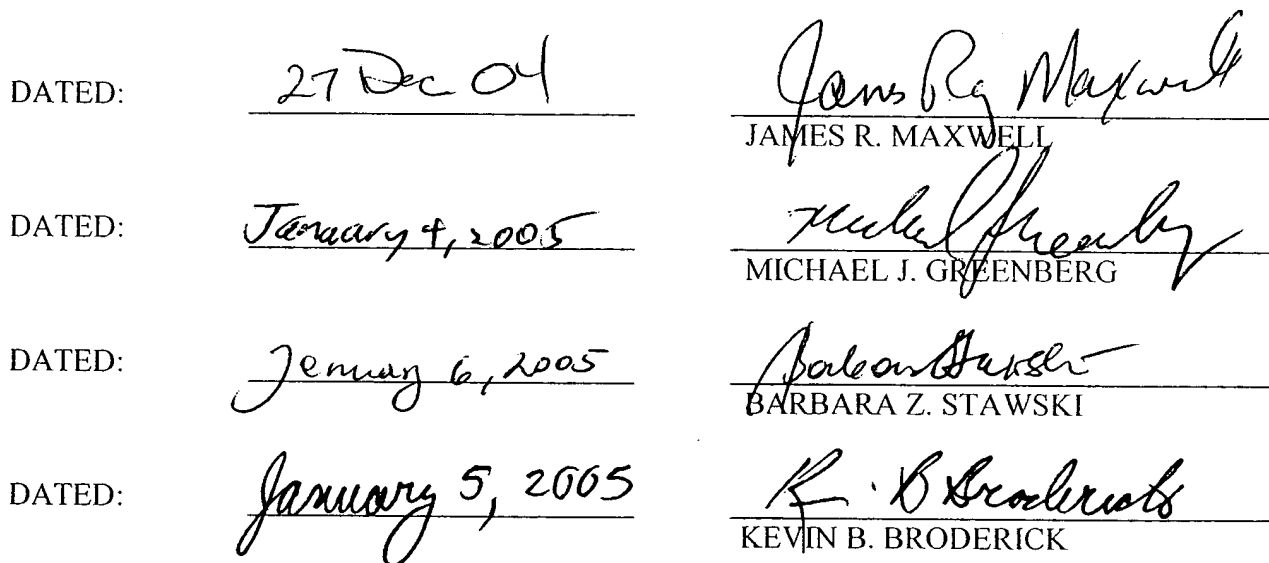 DATED: 27 Dec 04 James Ray Maxwell
JAMES R. MAXWELL
DATED: January 4, 2005 Michael J Greenberg
MICHAEL J. GREENBERG
DATED: January 6, 2005 Barbara Stawski
BARBARA Z. STAWSKI
DATED: January 5, 2005 K. B Broderick
KEVIN B. BRODERICK